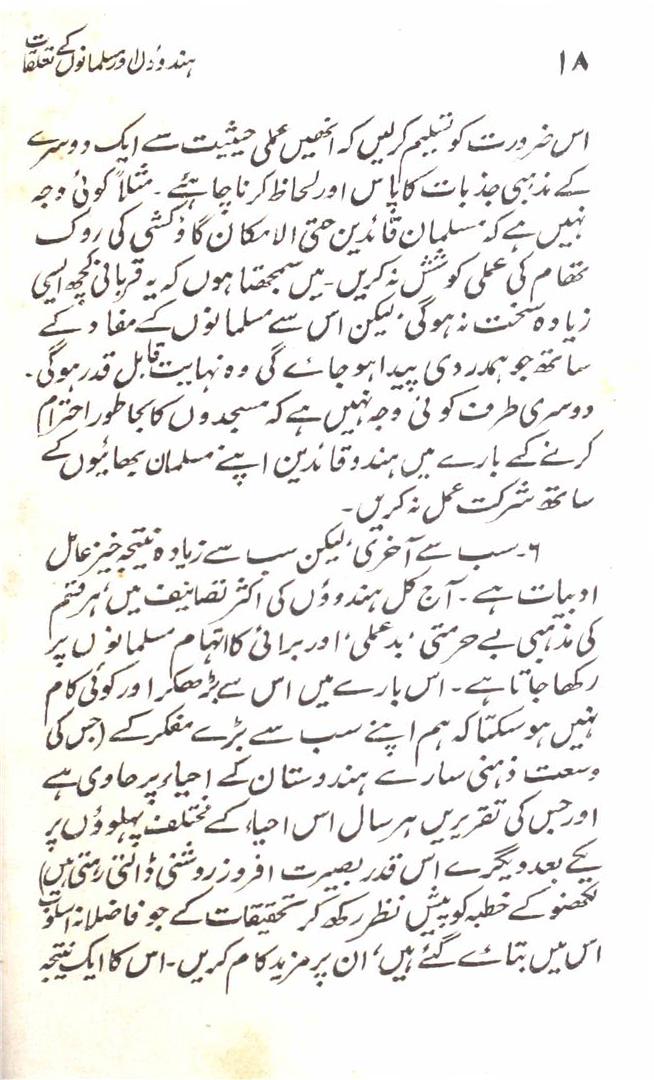 ۱۸
ہندوؤں اور مسلمانوں کے تعلقات
اس ضرورت کو تسلیم کر لیں کہ انھیں عملی حیثیت سے ایک دوسرے
کے مذہبی جذبات کا پاس اور لحاظ کرنا چاہئے۔ مثلاً کوئی وجہ
نہیں ہے کہ مسلمان قائدین حتی الامکان گاؤکشی کی روک
تھام کی عملی کوشش نہ کریں۔ میں سمجھتا ہوں کہ یہ قربانی کچھ ایسی
زیادہ سخت نہ ہوگی، لیکن اس سے مسلمانوں کے مفاد کے
ساتھ جو ہمدردی پیدا ہو جائے گی وہ نہایت قابل قدر ہوگی۔
دوسری طرف کوئی وجہ نہیں ہے کہ مسجدوں کا بجا طور احترام
کرنے کے بارے میں ہندو قائدین اپنے مسلمان بھائیوں کے
ساتھ شرکت عمل نہ کریں۔
۶۔ سب سے آخری، لیکن سب سے زیادہ نتیجہ خیز عامل
ادبیات ہے۔ آج کل ہندوؤں کی اکثر تصانیف میں، ہر قسم
کی مذہبی بے حرمتی، بدعملی، اور برائی کا اتہام مسلمانوں پر
رکھا جاتا ہے۔ اس بارے میں اس سے بڑھکر اور کوئی کام
نہیں ہو سکتا کہ ہم اپنے سب سے بڑے مفکر کے (جس کی
وسعت ذہنی سارے ہندوستان کے احیاء پر حاوی ہے
اور جس کی تقریریں ہر سال اس احیاء کے مختلف پہلوؤں پر
یکے بعد دیگرے اس قدر بصیرت افروز روشنی ڈالتی رہتی ہیں)
لکھنؤ کے خطبہ کو پیش نظر رکھ کر تحقیقات کے جو فاضلانہ اسلوب
اس میں بتائے گئے ہیں، ان پر مزید کام کریں۔ اس کا ایک نتیجہ